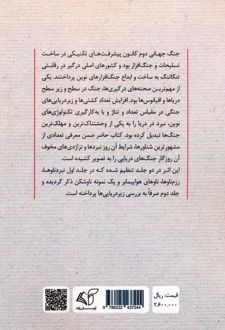 جنگ جهانی دوم کانون پیشرفت‌های تکنیکی در ساخت
تسلیحات و جنگ‌افزار بود و کشورهای اصلی درگیر در رقابتی
تنگاتنگ به ساخت و ابداع جنگ‌افزارهای نوین پرداختند. یکی
از مهم‌ترین صحنه‌های درگیری‌ها، جنگ در سطح و زیر سطح
دریاها و اقیانوس‌ها بود. افزایش تعداد کشتی‌ها و زیردریایی‌های
جنگی در مقیاس تعداد و تناژ و با به‌کارگیری تکنولوژی‌های
نوین، نبرد در دریا را به یکی از وحشتناک‌ترین و مهلک‌ترین
جنگ‌ها تبدیل کرده بود. کتاب حاضر ضمن معرفی تعدادی از
مشهورترین شناورها، شرایط آن روز نبردها و تراژدی‌های مخوف
آن روزگار جنگ‌های دریایی را به تصویر کشیده است.
این اثر در دو جلد تنظیم شده که در جلد اول نبردناوها،
رزم‌ناوها، ناوهای هواپیمابر و یک نمونه ناوشکن ذکر گردیده و
جلد دوم صرفاً به بررسی زیردریایی‌ها پرداخته است.
قیمت: ریال
۲,۶۰۰,۰۰۰
9 786222 437244